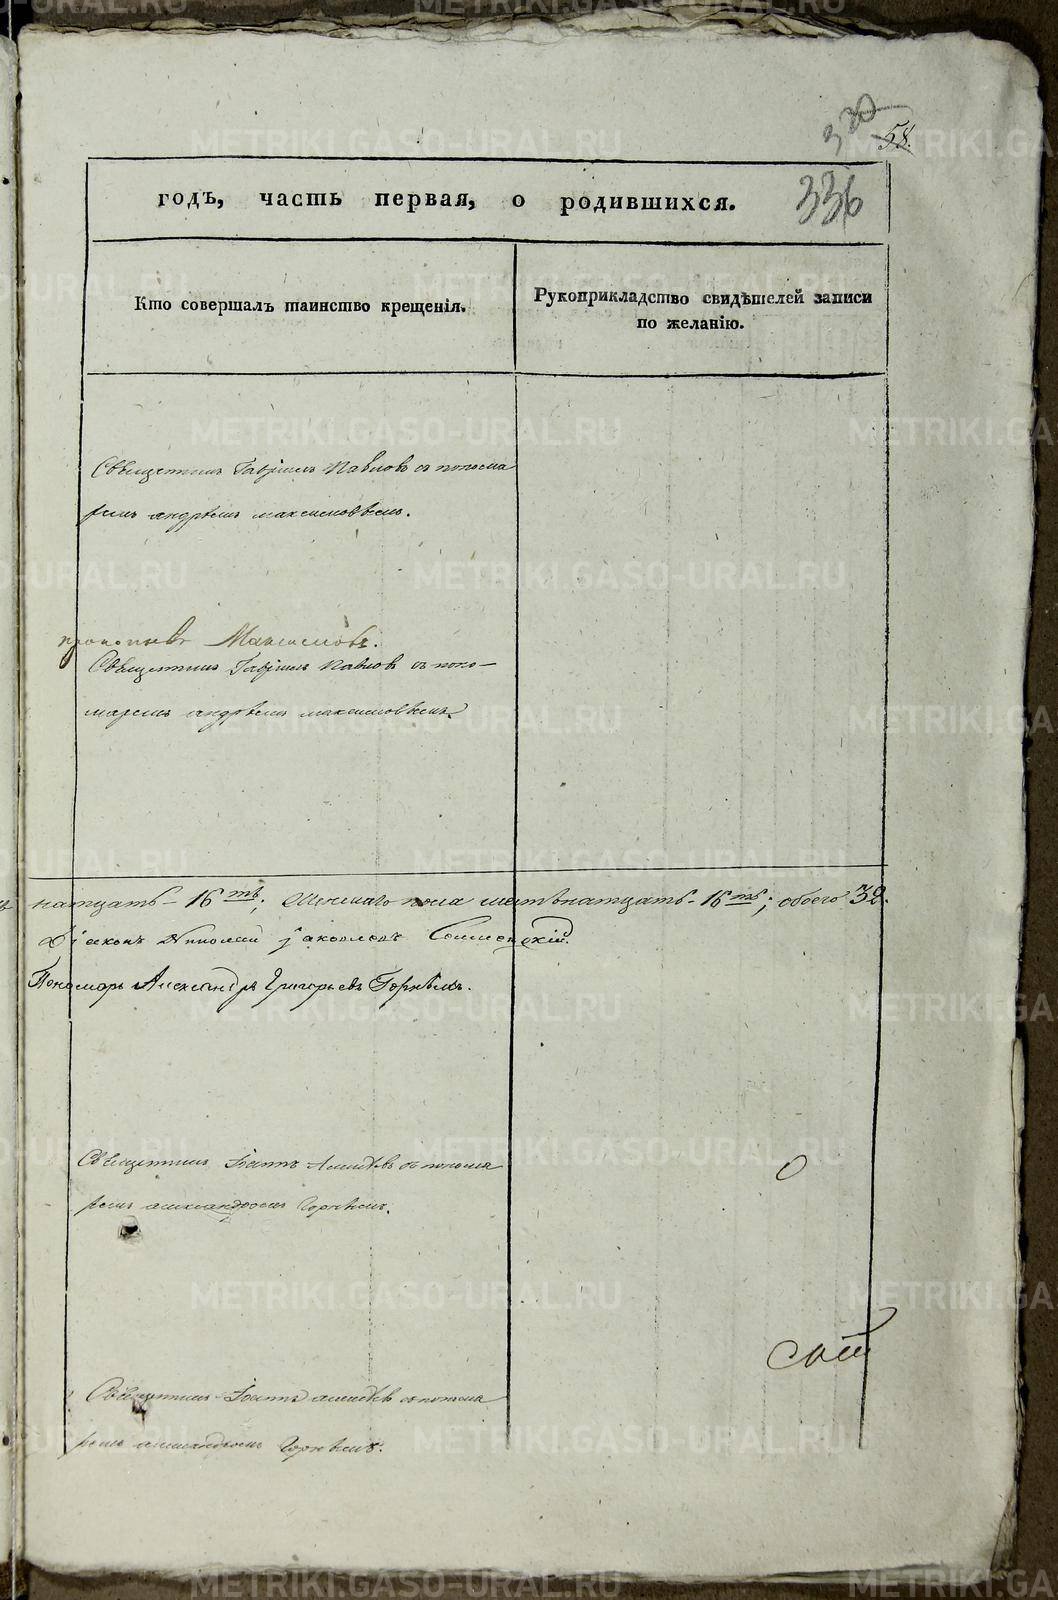 330
58.
336
годъ, часть первая, о родившихся.
Кто совершалъ таинство крещенія.
Рукоприкладство свидѣтелей записи
по желанію.
Священникъ Гавріилъ Павловъ съ понома
ремъ андрѣемъ максимовымъ.
Максимовъ.
Священникъ Гавріилъ Павловъ съ поно-
маремъ андрѣемъ максимовымъ.
натцать - 16ть; Женскаго пола шестьнатцать - 16ть; обоего 32.
Діаконъ Николай Іаковлевъ
Пономарь Александръ Григорьевъ Горнѣхъ.
Священникъ Іоаннъ съ понома
ремъ александромъ Горнымъ.
Священникъ Іоаннъ съ понома
ремъ александромъ Горнымъ.
METRIKI.GASO-URAL.RU